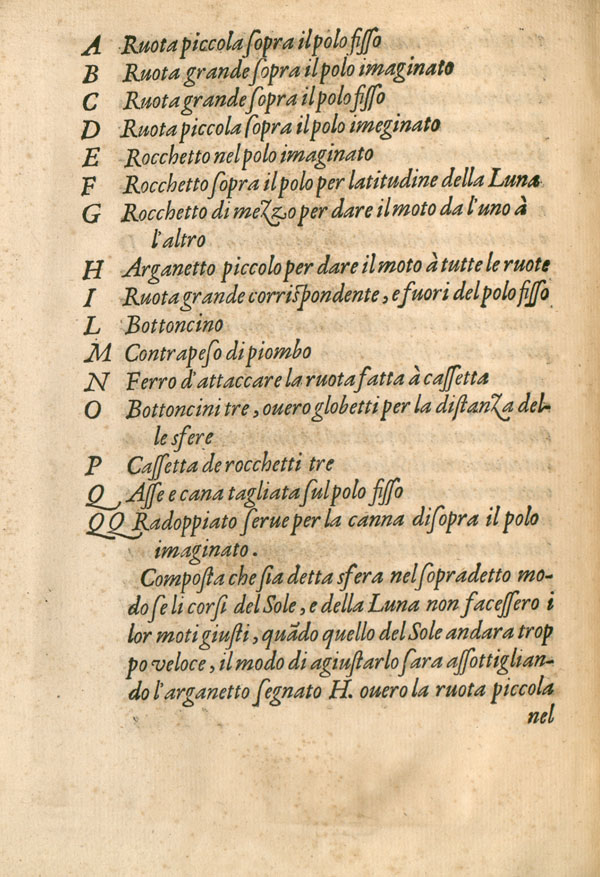 A Ruota piccola sopra il polo fisso
B Ruota grande sopra il polo imaginato
C Ruota grande sopra il polo fisso
D Ruota piccola sopra il polo imeginato
E Rocchetto nel polo imaginato
F Rocchetto sopra il polo per latitudine della Luna
G Rocchetto di mezzo per dare il moto da l'uno à
l'altro
H Arganetto piccolo per dare il moto à tutte le ruote
I Ruota grande corrispondente, e fuori del polo fisso
L Bottoncino
M Contrapeso di piombo
N Ferro d'attaccare la ruota fatta à cassetta
O Bottoncini tre, ouero globetti per la distanza del-
le sfere
P Cassetta de rocchetti tre
Q Asse e cana tagliata sul polo fisso
QQ Radoppiato serue per la canna disopra il polo
imaginato.
Composta che sia detta sfera nel sopradetto mo-
do se li corsi del Sole, e della Luna non facessero i
lor moti giusti, quãdo quello del Sole andara trop
po veloce, il modo di agiustarlo sara assottiglian-
do l'arganetto segnato H. ouero la ruota piccola
nel